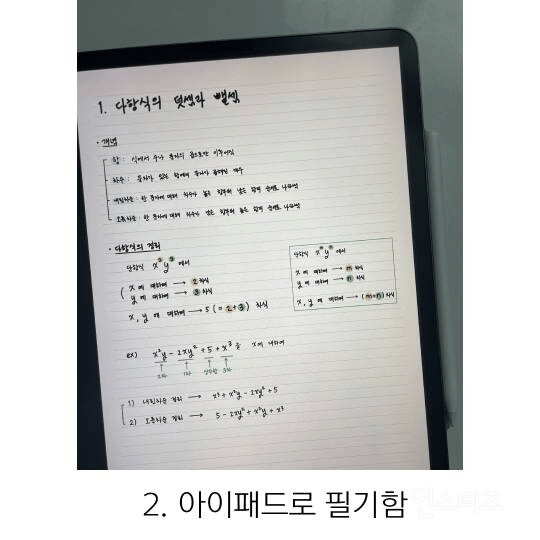 1. 다항식의 덧셈과 뺄셈
· 개념
항 : 식에서 수나 문자의 곱으로만 이루어짐
차수 : 문자가 있는 항에서 문자가 곱해진 개수
내림차순 : 한 문자에 대해 차수가 높은 항부터 낮은 항의 순서로 나타냄
오름차순 : 한 문자에 대해 차수가 낮은 항부터 높은 항의 순서로 나타냄
· 다항식의 정리
단항식 x²y³ 에서
x 에 대하여 → 2차식
y 에 대하여 → 3차식
x, y 에 대하여 → 5 (=2+3) 차식
단항식 xᵐyⁿ 에서
x 에 대하여 → m 차식
y 에 대하여 → n 차식
x, y 에 대하여 → (m+n) 차식
ex) x²y - 2xy² + 5 + x³ 을 x에 대하여
2차 1차 상수항 3차
1) 내림차순 정리 → x³ + x²y - 2xy² + 5
2) 오름차순 정리 → 5 - 2xy² + x²y + x³
2. 아이패드로 필기함
인스티즈